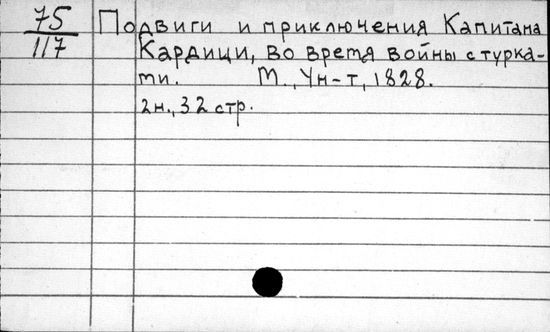 75
117
Подвиги и приключения Капитана
Кардици, во время войны с турка-
ми. М., Ун-т, 1828.
2н., 32 стр.